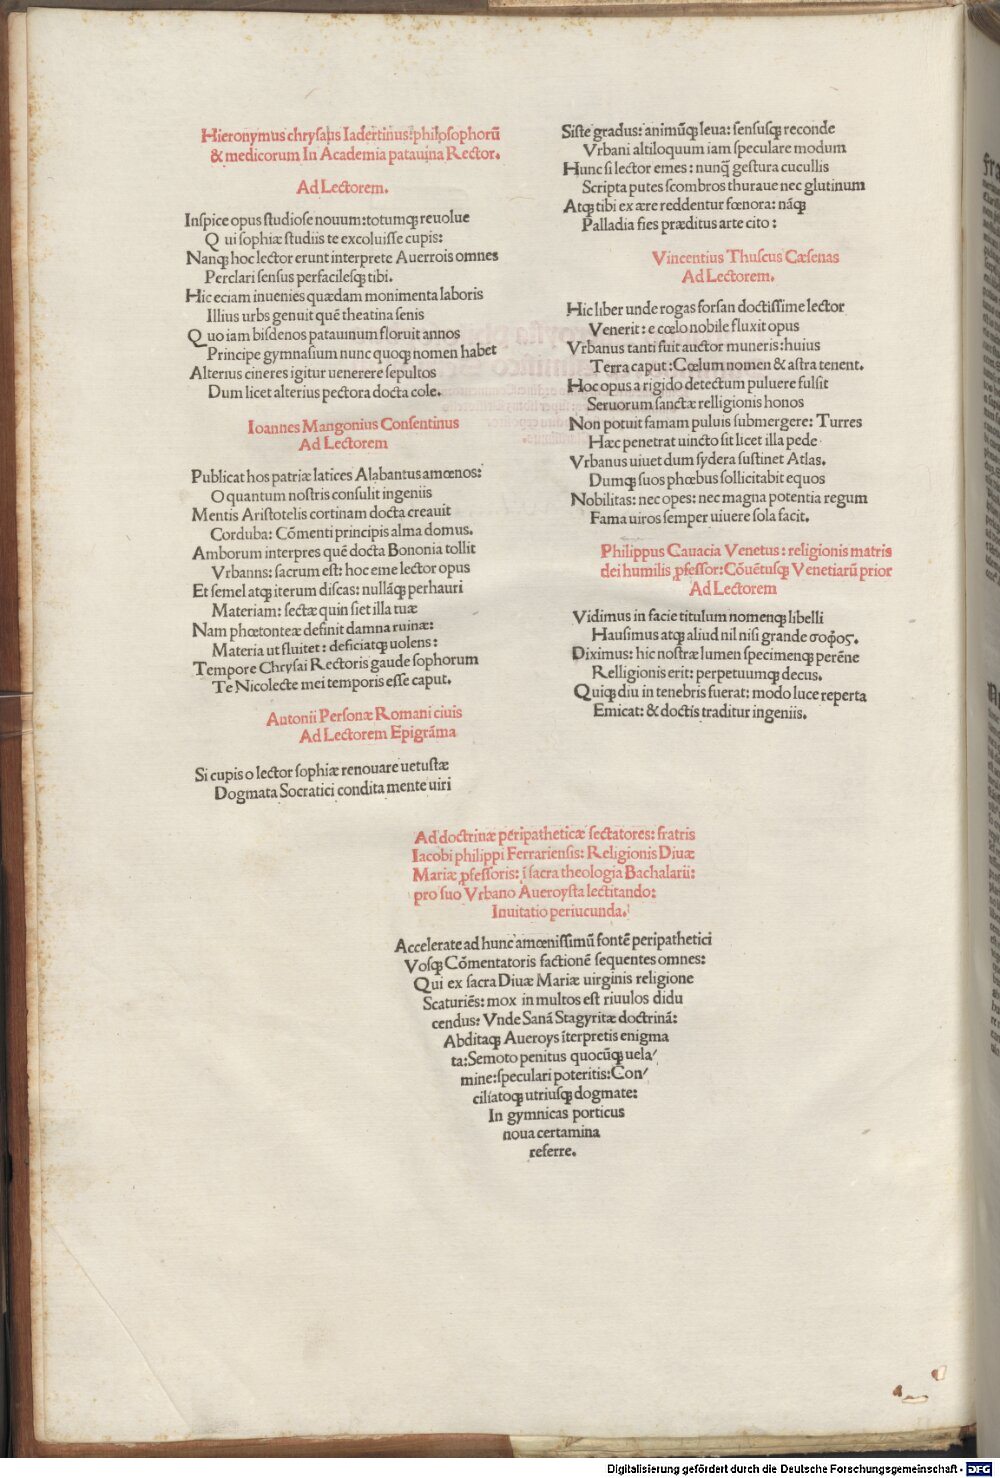 Hieronymus chrysaus Iadertinus: philosophorū
& medicorum In Academia patauina Rector.
Ad Lectorem.
Inspice opus studiose nouum: totumqꝫ reuolue
Q ui sophiæ studiis te excoluisse cupis:
Nanqꝫ hoc lector erunt interprete Auerrois omnes
Perclari sensus perfacilesqꝫ tibi.
Hic eciam inuenies quædam monimenta laboris
Illius urbs genuit quē theatina senis
Q uo iam bisdenos patauinum floruit annos
Principe gymnasium nunc quoqꝫ nomen habet
Alterius cineres igitur uenerere sepultos
Dum licet alterius pectora docta cole.
Ioannes Mangonius Consentinus
Ad Lectorem
Publicat hos patriæ latices Alabantus amœnos:
O quantum nostris consulit ingeniis
Mentis Aristotelis cortinam docta creauit
Corduba: Cōmenti principis alma domus.
Amborum interpres quē docta Bononia tollit
Vrbanns: sacrum est: hoc eme lector opus
Et semel atqꝫ iterum discas: nullāqꝫ perhauri
Materiam: sectæ quin siet illa tuæ
Nam phœtonteæ definit damna ruinæ:
Materia ut fluitet: deficiatqꝫ uolens:
Tempore Chrysai Rectoris gaude sophorum
Te Nicolecte mei temporis esse caput.
Autonii Personæ Romani ciuis
Ad Lectorem Epigrāma
Si cupis o lector sophiæ renouare uetustæ
Dogmata Socratici condita mente uiri
Siste gradus: animūqꝫ leua: sensusqꝫ reconde
Vrbani altiloquum iam speculare modum
Hunc si lector emes: nunq̄ gestura cucullis
Scripta putes scombros thuraue nec glutinum
Atqꝫ tibi ex ære reddentur fœnora: nāqꝫ
Palladia fies præditus arte cito:
Vincentius Thuscus Cæsenas
Ad Lectorem.
Hic liber unde rogas forsan doctissime lector
Venerit: e cœlo nobile fluxit opus
Vrbanus tanti fuit auctor muneris: huius
Terra caput: Cœlum nomen & astra tenent.
Hoc opus a rigido detectum puluere fulsit
Seruorum sanctæ relligionis honos
Non potuit famam puluis submergere: Turres
Hæc penetrat uincto sit licet illa pede
Vrbanus uiuet dum sydera sustinet Atlas.
Dumqꝫ suos phœbus sollicitabit equos
Nobilitas: nec opes: nec magna potentia regum
Fama uiros semper uiuere sola facit.
Philippus Cauacia Venetus: religionis matris
dei humilis ꝓfessor: Cōuētusqꝫ Venetiarū prior
Ad Lectorem
Vidimus in facie titulum nomenqꝫ libelli
Hausimus atqꝫ aliud nil nisi grande σοφος.
Diximus: hic nostræ lumen specimenqꝫ perēne
Relligionis erit: perpetuumqꝫ decus.
Quiqꝫ diu in tenebris fuerat: modo luce reperta
Emicat: & doctis traditur ingeniis.
Ad doctrinæ peripatheticæ sectatores: fratris
Iacobi philippi Ferrariensis: Religionis Diuæ
Mariæ ꝓfessoris: ī sacra theologia Bachalarii:
pro suo Vrbano Aueroysta lectitando:
Inuitatio periucunda.
Accelerate ad hunc amœnissimū fontē peripathetici
Vosqꝫ Cōmentatoris factionē sequentes omnes:
Qui ex sacra Diuæ Mariæ uirginis religione
Scaturiēs: mox in multos est riuulos didu
cendus: Vnde Sanā Stagyritæ doctrinā:
Abditaqꝫ Aueroys īterpretis enigma
ta: Semoto penitus quocūqꝫ uela/
mine: speculari poteritis: Con/
ciliatoqꝫ utriusqꝫ dogmate:
In gymnicas porticus
noua certamina
referre.
Digitalisierung gefördert durch die Deutsche Forschungsgemeinschaft - DFG